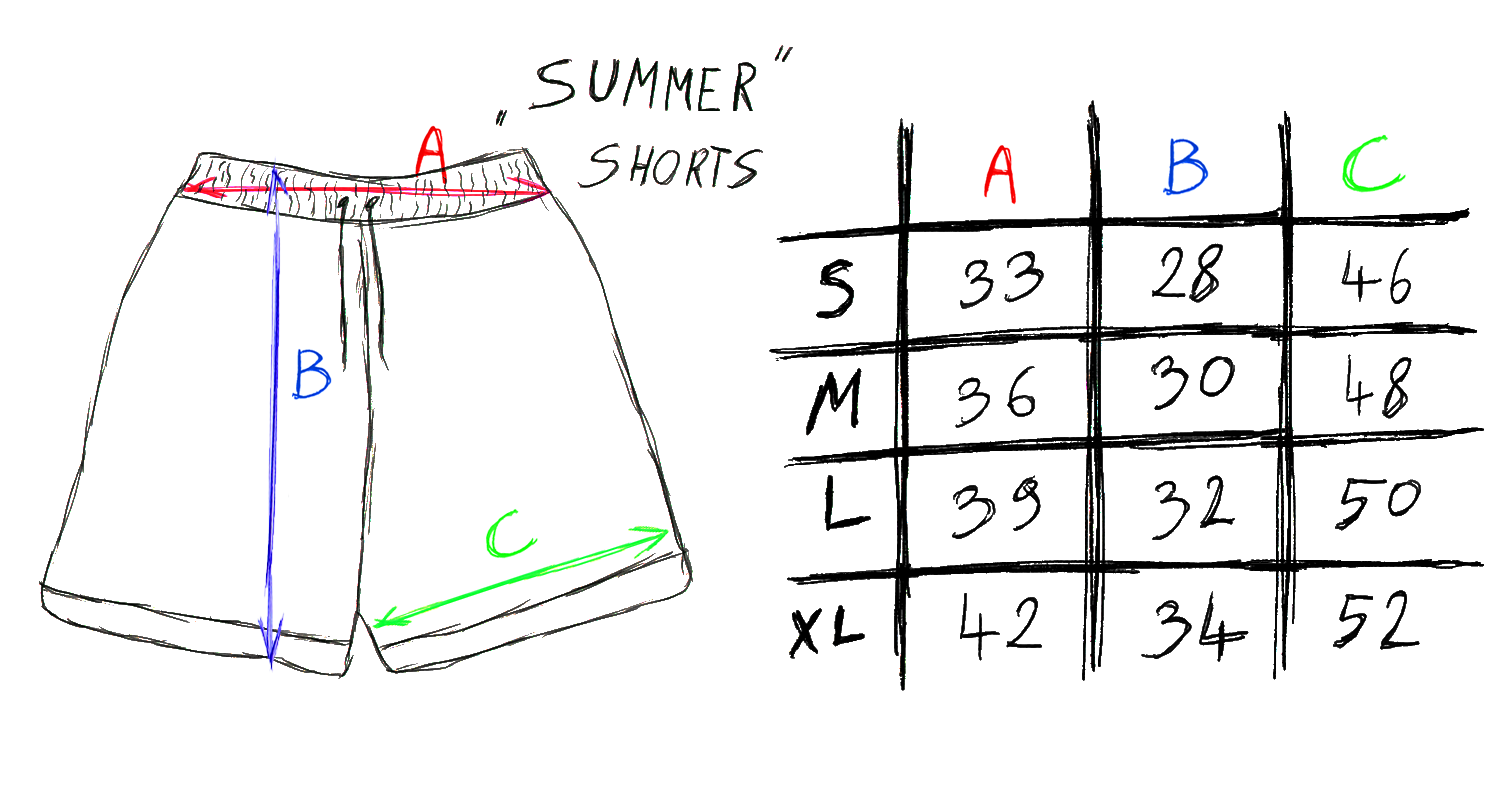 „SUMMER"
SHORTS
A
B
C
A B C
S 33 28 46
M 36 30 48
L 39 32 50
XL 42 34 52